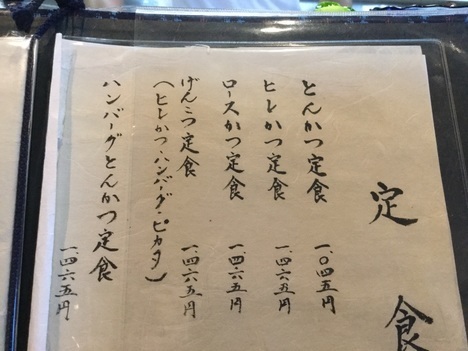 定食
とんかつ定食 一、〇四五円
ヒレかつ定食 一、四六五円
ロースかつ定食 一、四六五円
げんこつ定食 一、四六五円
（ヒレかつ・ハンバーグ・ピカタ）
ハンバーグとんかつ定食 一、四六五円